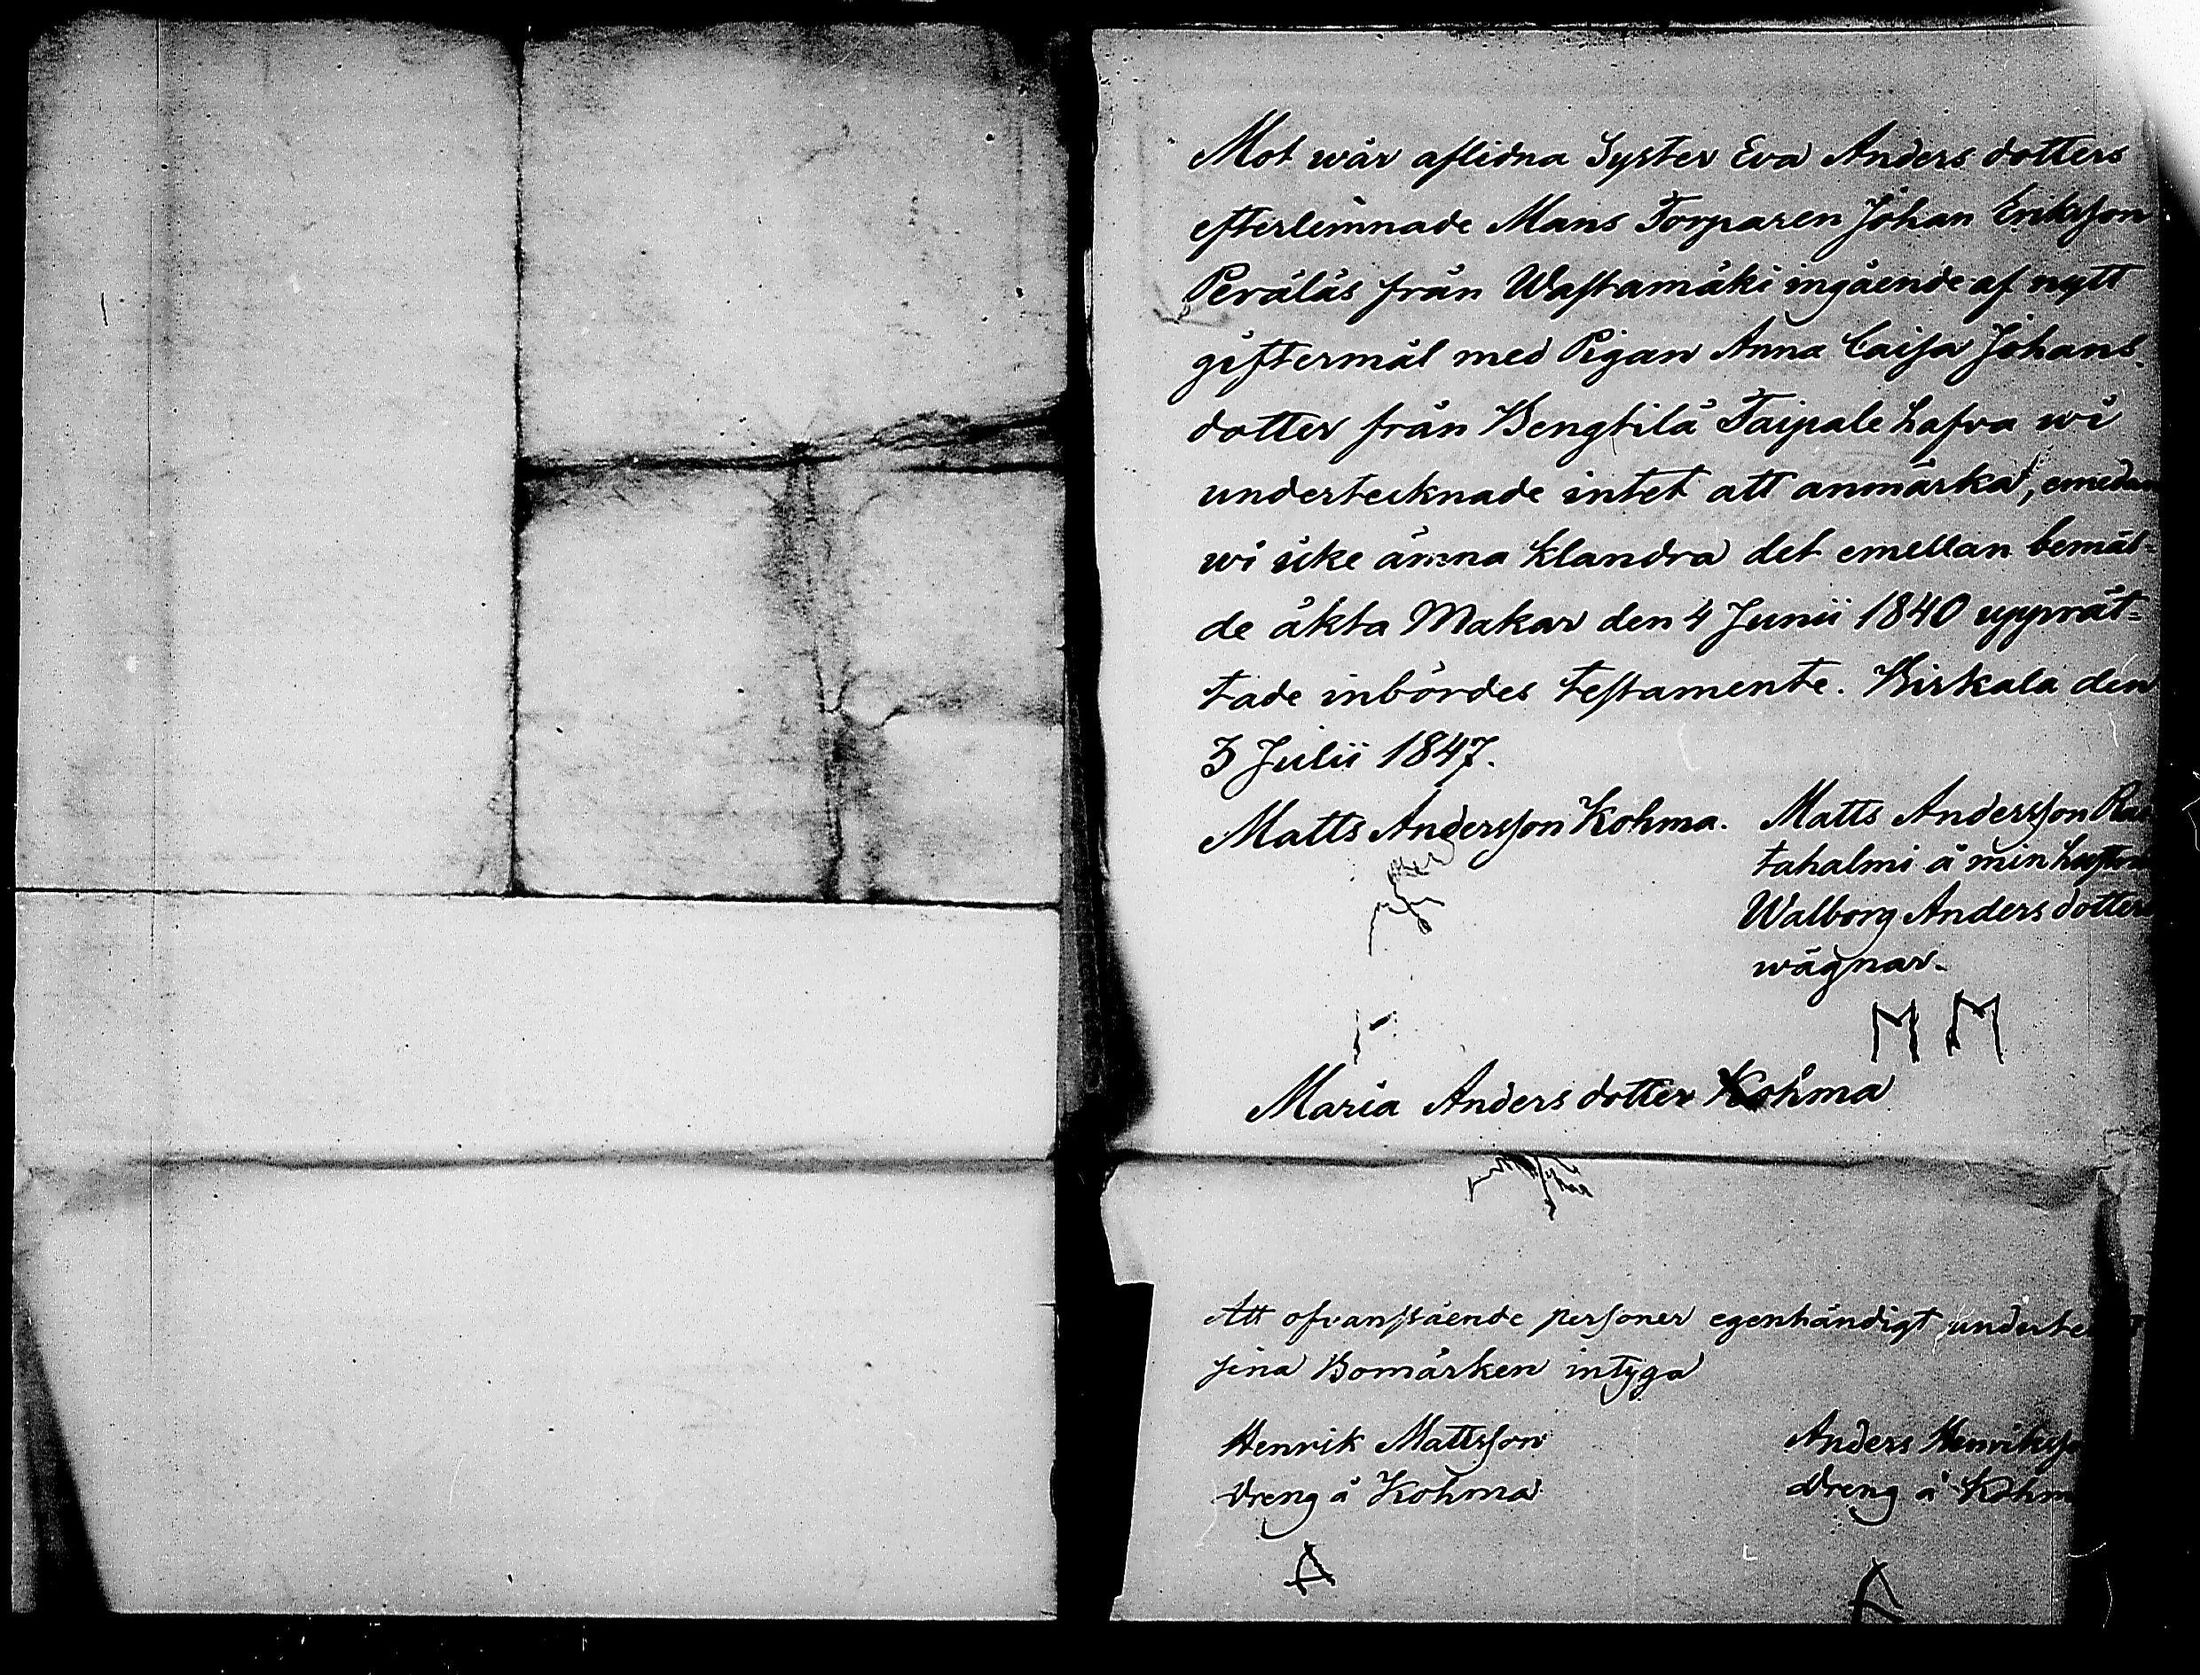 Mot wår aflidna Syster Eva Anders dotters
efterlemnade Mans Torparen Johan Eriksson
Peräläs från Wastamäki ingående af nytt
giftermål med Pigan Anna Caisa Johans
dotter från Bengtilä Taipale hafva wi
undertecknade intet att anmärka, emedan
wi icke ämna klandra det emellan bemäl=
de äkta Makar den 4 Junii 1840 upprät=
tade inbördes testamente. Birkala den
3 Julii 1847.
Matts Andersson Kohma.
Matts Andersson
tahalmi å min hustrus
Walborg Anders dotters
wägnar.
M M
Maria Anders dotter Kohma
Att ofvanstående personer egenhändigt
sina Bomärken intyga
Henrik Mattsson
Dreng å Kohma
A
Anders Henriksso
Dreng å Kohm
A